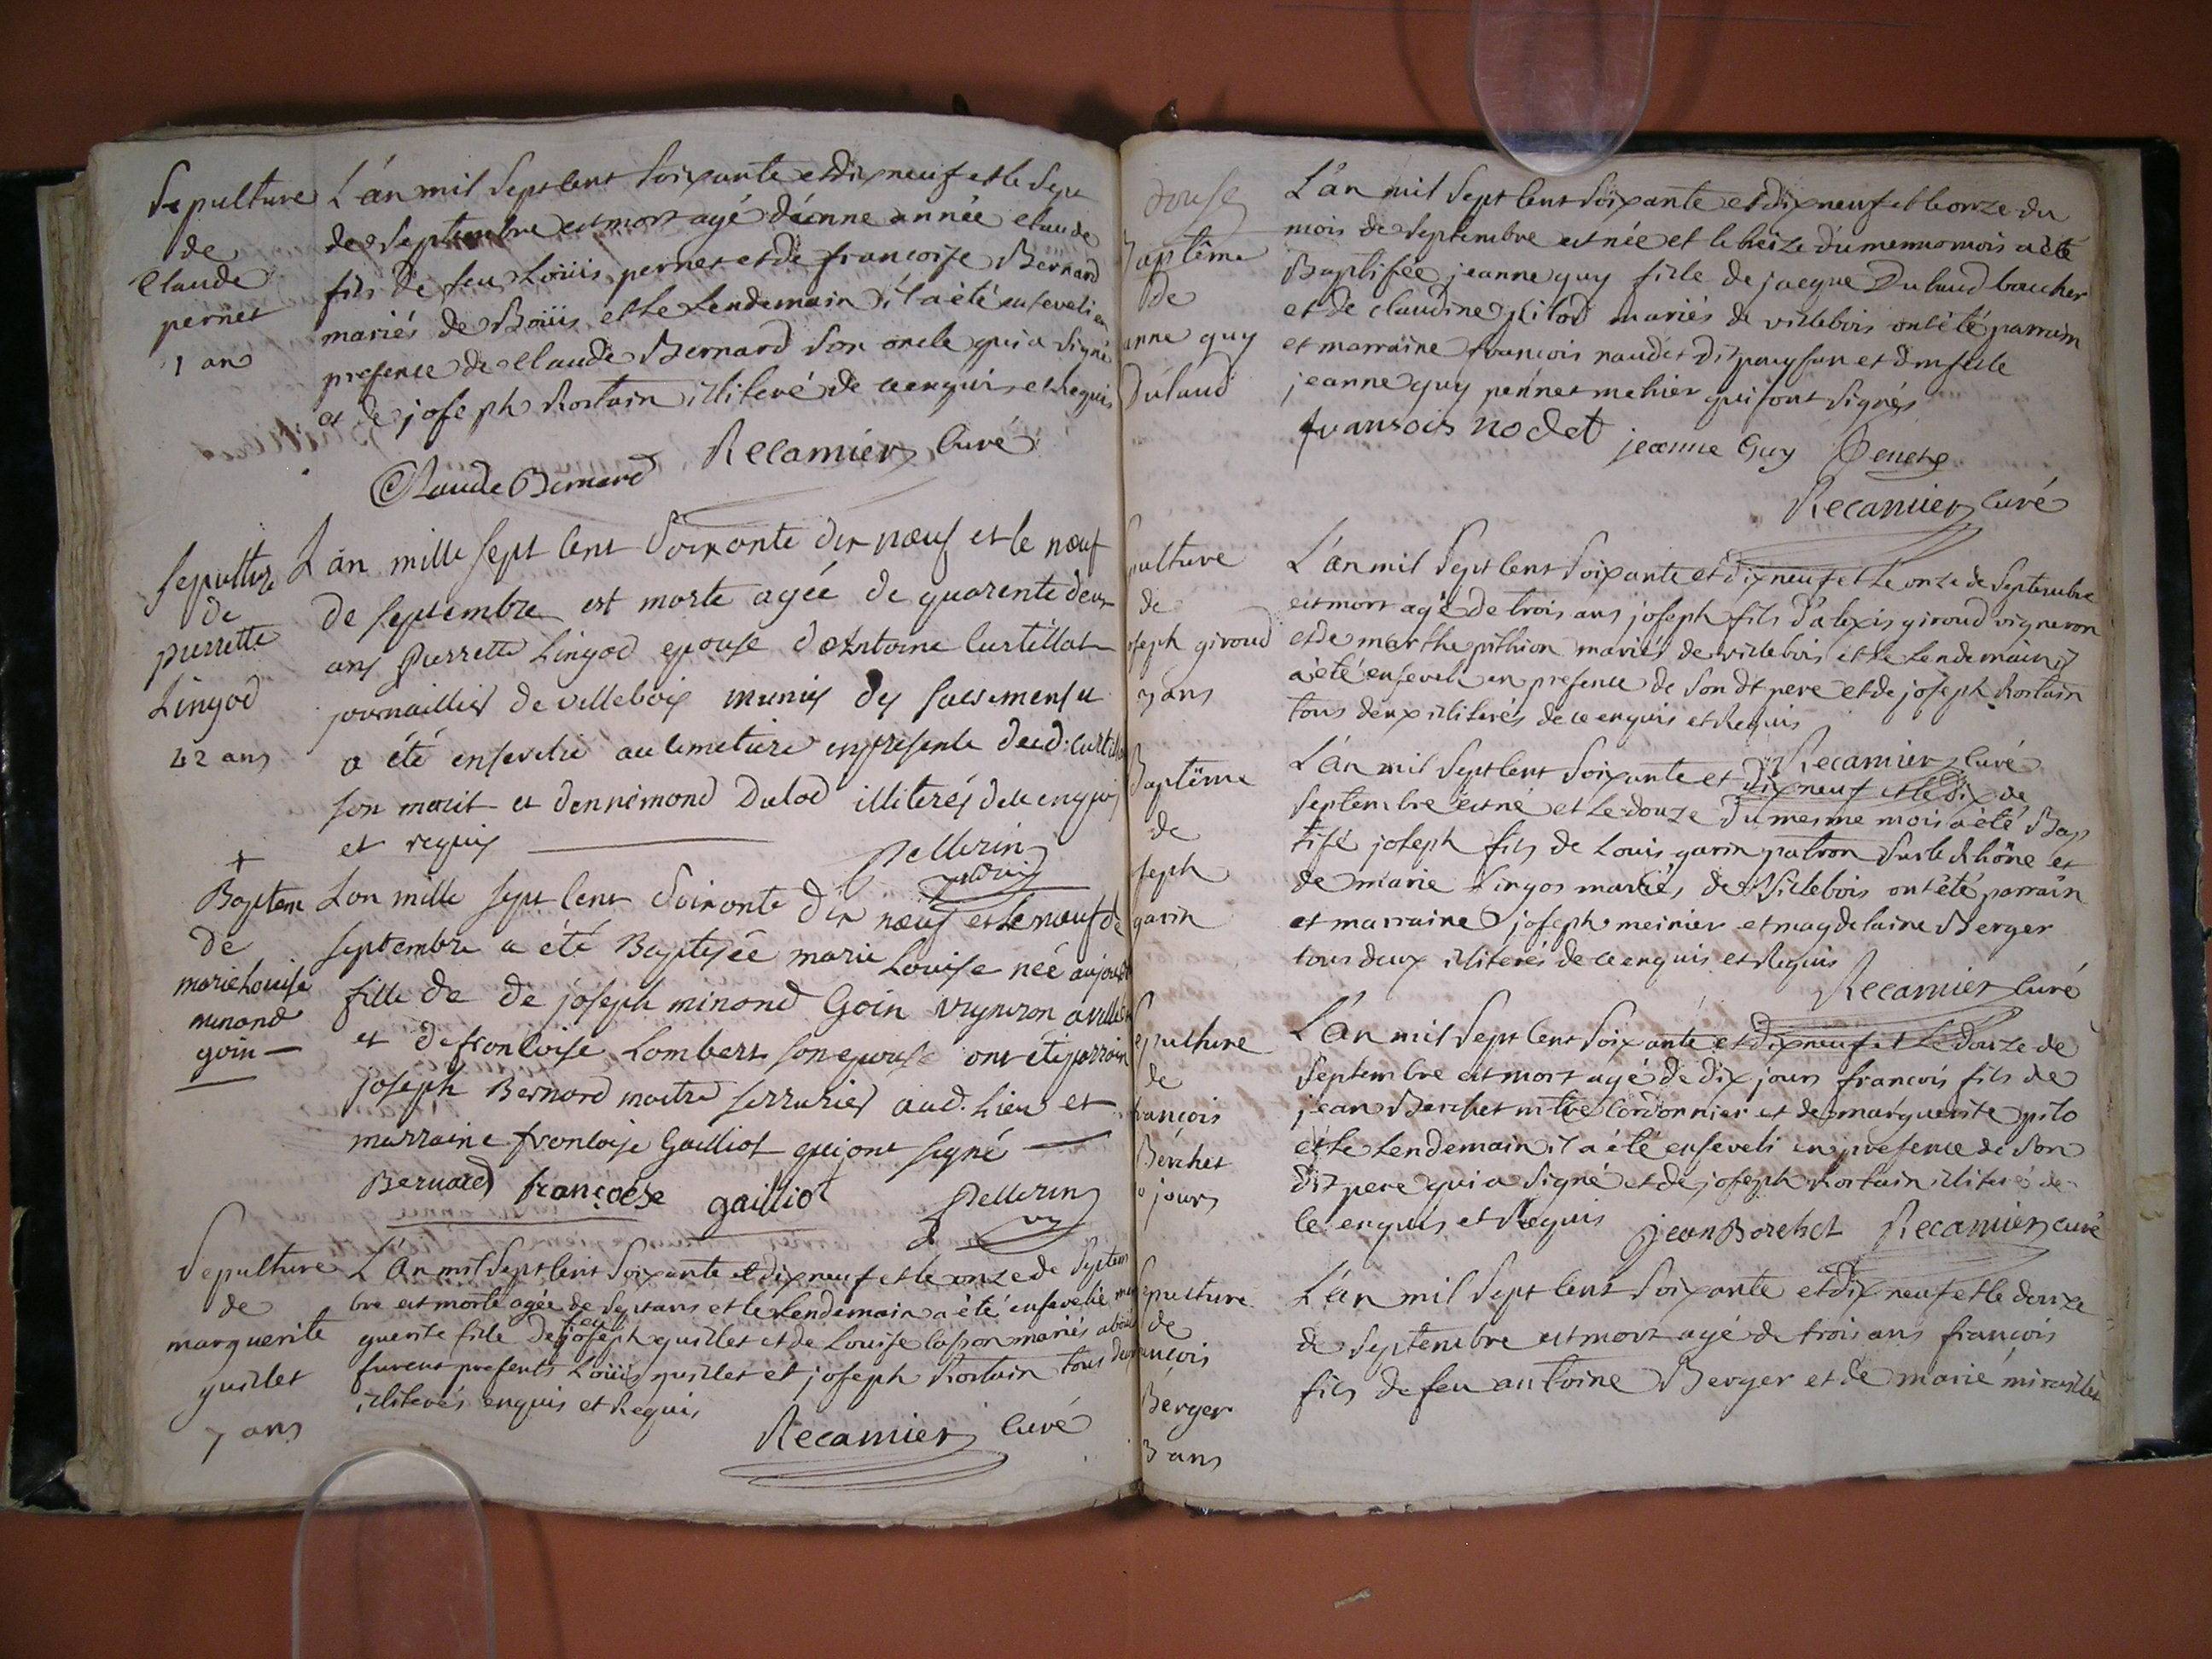 Sepulture
de
Claude
pernet
1 an
L'an mil Sept Cent Soixante et dix neuf et le Sept
de Septembre est mort agé d'eunne année Claude
fils de feu Loüis pernet et de francoise Bernard
mariés de Boüis et le Lendemain il a été enseveli en
presence de Claude Bernard Son oncle qui a Signé
et de joseph Rostain illiteré de ce enquis et Requis
Claude Bernard Recamier Curé
Sepulture
de
pierrette
Lingod
42 ans
L'an mille sept Cent Soixante dix neuf et le neuf
de septembre est morte agée de quarente deux
ans Pierrette Lingod epouse d'Antoine Curtillat
journaillier de villebois munis des sacremens et
a été ensevelie au cemetiere en presence dud. Curtillat
son marit et dennemond Dulod illiterés de ce enquis
et requis
Pellerin
vic
+
Baptem
de
marie Louise
minond
goin
Lan mille sept Cent Soixante dix neuf et le neuf de
septembre a été Baptisée marie Louise née aujourd
fille de de joseph minond Goin vigneron a villeb
et de francoise Lombert son epouse ont été parrain
joseph Bernard maitre serrurier aud. Lieu et
marraine francoise Gailliot qui ont signé
Bernard françoise gailliot Pellerin
vic
Sepulture
de
marguerite
guillet
7 ans
L'An mil Sept Cent Soixante et dix neuf et le onze de Septem
bre est morte agée de Sept ans et le Lendemain a été ensevelie mar
guerite fille de feu joseph guillet et de Louise lasson mariés a boüis
furent presents Loüis guillet et joseph Rostain tous deux
illiterés enquis et Requis
Recamier Curé
douse
Baptême
de
anne guy
Dulaud
L'an mil Sept Cent Soixante et dix neuf et le onze du
mois de Septembre est née et le treize du meme mois a été
Baptisée jeanne guy fille de jacque Dulaud boucher
et de Claudine pilod mariés de villebois ont été parrain
et marraine francois naudet dit paysan et dmselle
jeanne guy pennet mehier qui ont Signés
fransois nodet jeanne Guy Penet
Recamier Curé
pulture
de
oseph giroud
3 ans
L'an mil Sept Cent Soixante et dix neuf et Le onze de Septembre
est mort agé de trois ans joseph fils d'alexis giroud vigneron
et de marthe pithion mariés de villebois et le Lendemain il
a été enseveli en presence de Son dt pere et de joseph Rostain
tous deux illiterés de ce enquis et Requis
Recamier Curé
Baptême
de
seph
garin
L'an mil Sept Cent Soixante et dix neuf et le dix de
Septembre est né et Le douze du mesme mois a été Bap
tisé joseph fils de Louis garin patron Sur le Rhône et
de marie Lingos mariés de Villebois ont été parrain
et marraine joseph meinier et magdelaine Berger
tous deux illiterés de ce enquis et Requis
Recamier Curé
epulture
de
rancois
Berchet
10 jours
L'an mil Sept Cent Soixante et dix neuf et Le douze de
Septembre est mort agé de dix jours francois fils de
jean Berchet mtre Cordonnier et de marguerite pilo
et le Lendemain il a été enseveli en presence de Son
dit pere qui a Signé et de joseph Rostain illiteré de
Ce enquis et Requis jean Borchet Recamier Curé
Sepulture
de
ancois
Berger
3 ans
L'an mil Sept Cent Soixante et dix neuf et le douze
de Septembre est mort agé de trois ans francois
fils de feu antoine Berger et de marie